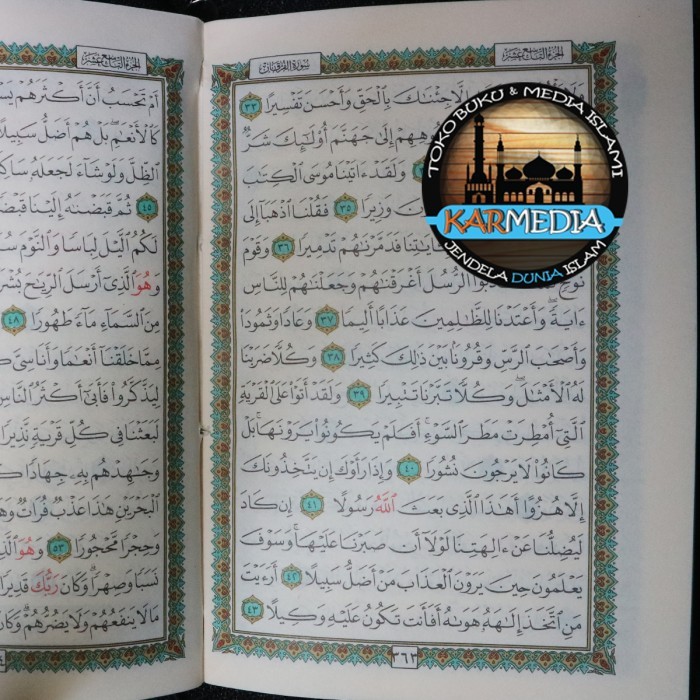 الجزء التاسع عشر
سورة الفرقان
جِئْنَٰكَ بِٱلْحَقِّ وَأَحْسَنَ تَفْسِيرًا ٣٣
إِلَىٰ جَهَنَّمَ أُو۟لَٰٓئِكَ شَرٌّ
وَلَقَدْ ءَاتَيْنَا مُوسَى ٱلْكِتَٰبَ
وَزِيرًا ٣٥ فَقُلْنَا ٱذْهَبَآ إِلَى
فَدَمَّرْنَٰهُمْ تَدْمِيرًا ٣٦ وَقَوْمَ
نُوحٍ ٱلرُّسُلَ أَغْرَقْنَٰهُمْ وَجَعَلْنَٰهُمْ لِلنَّاسِ
ءَايَةً وَأَعْتَدْنَا لِلظَّٰلِمِينَ عَذَابًا أَلِيمًا ٣٧ وَعَادًا وَثَمُودَا۟
وَأَصْحَٰبَ ٱلرَّسِّ وَقُرُونًۢا بَيْنَ ذَٰلِكَ كَثِيرًا ٣٨ وَكُلًّا ضَرَبْنَا
لَهُ ٱلْأَمْثَٰلَ وَكُلًّا تَبَّرْنَا تَتْبِيرًا ٣٩ وَلَقَدْ أَتَوْا۟ عَلَى ٱلْقَرْيَةِ
ٱلَّتِىٓ أُمْطِرَتْ مَطَرَ ٱلسَّوْءِ أَفَلَمْ يَكُونُوا۟ يَرَوْنَهَا بَلْ
كَانُوا۟ لَا يَرْجُونَ نُشُورًا ٤٠ وَإِذَا رَأَوْكَ إِن يَتَّخِذُونَكَ
إِلَّا هُزُوًا أَهَٰذَا ٱلَّذِى بَعَثَ ٱللَّهُ رَسُولًا ٤١ إِن كَادَ
لَيُضِلُّنَا عَنْ ءَالِهَتِنَا لَوْلَآ أَن صَبَرْنَا عَلَيْهَا وَسَوْفَ
يَعْلَمُونَ حِينَ يَرَوْنَ ٱلْعَذَابَ مَنْ أَضَلُّ سَبِيلًا ٤٢ أَرَءَيْتَ
مَنِ ٱتَّخَذَ إِلَٰهَهُۥ هَوَىٰهُ أَفَأَنتَ تَكُونُ عَلَيْهِ وَكِيلًا ٤٣
٣٦٣
TOKO BUKU & MEDIA ISLAMI
KARMEDIA
JENDELA DUNIA ISLAM
الجزء التاسع عشر
أَمْ تَحْسَبُ أَنَّ أَكْثَرَهُمْ
كَٱلْأَنْعَٰمِ بَلْ هُمْ أَضَلُّ سَبِيلًا
ٱلظِّلَّ وَلَوْ شَآءَ لَجَعَلَهُۥ
٤٥ ثُمَّ قَبَضْنَٰهُ إِلَيْنَا
لَكُمُ ٱلَّيْلَ لِبَاسًا وَٱلنَّوْمَ
وَهُوَ ٱلَّذِىٓ أَرْسَلَ ٱلرِّيَٰحَ
مِنَ ٱلسَّمَآءِ مَآءً طَهُورًا ٤٨
مِمَّا خَلَقْنَآ أَنْعَٰمًا وَأَنَاسِىَّ
لِيَذَّكَّرُوا۟ فَأَبَىٰٓ أَكْثَرُ ٱلنَّاسِ
لَبَعَثْنَا فِى كُلِّ قَرْيَةٍ نَّذِيرًا
وَجَٰهِدْهُم بِهِۦ جِهَادًا
ٱلْبَحْرَيْنِ هَٰذَا عَذْبٌ فُرَاتٌ
وَحِجْرًا مَّحْجُورًا ٥٣ وَهُوَ
نَسَبًا وَصِهْرًا وَكَانَ رَبُّكَ قَدِيرًا
مَا لَا يَنفَعُهُمْ وَلَا يَضُرُّهُمْ وَكَانَ